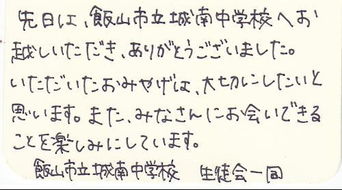 先日は、飯山市立城南中学校へお
越しいただき、ありがとうございました。
いただいたおみやげは、大切にしたいと
思います。また、みなさんにお会いできる
ことを楽しみにしています。
飯山市立城南中学校 生徒会一同